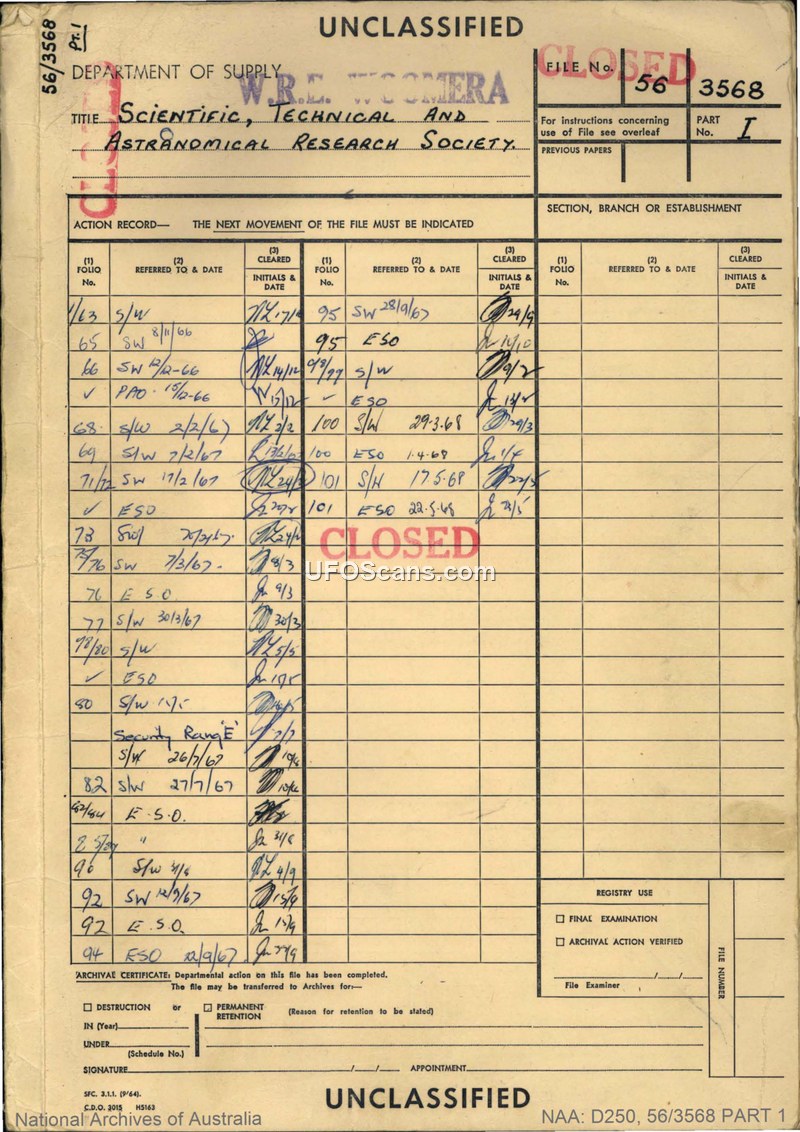 UNCLASSIFIED
56/3568 Pt.1
DEPARTMENT OF SUPPLY
W.R.E. WOOMERA
CLOSED
CLOSED
FILE No. 56 3568
TITLE SCIENTIFIC, TECHNICAL AND
ASTRONOMICAL RESEARCH SOCIETY.
For instructions concerning
use of File see overleaf
PART No. I
PREVIOUS PAPERS
ACTION RECORD— THE NEXT MOVEMENT OF THE FILE MUST BE INDICATED
SECTION, BRANCH OR ESTABLISHMENT
(1) FOLIO No. (2) REFERRED TO & DATE (3) CLEARED INITIALS & DATE
(1) FOLIO No. (2) REFERRED TO & DATE (3) CLEARED INITIALS & DATE
(1) FOLIO No. (2) REFERRED TO & DATE (3) CLEARED INITIALS & DATE
1/63 S/W
65 SW 8/11/66
66 SW 12/12-66 14/12
✓ PAO. 15/12-66
68 S/W 2/2/67 2/2
69 S/W 7/2/67
71/72 SW 17/2/67
✓ ESO
73 SW
75/76 SW 7/3/67 8/3
76 E S O 9/3
77 S/W 30/3/67 30/3
78/80 S/W 5/5
✓ ESO
80 S/W
Security Rang 'E' 7/7
S/W 26/7/67
82 S/W 27/7/67
82/84 E.S.O.
" 31/8
90 S/W 4/9
92 SW 12/9/67 15/9
92 E.S.O. 15/9
94 ESO 22/9/67
95 SW 28/9/67 29/9
95 ESO
98/99 S/W 9/2
✓ ESO
100 S/W 29.3.68 29/3
100 ESO 1.4.68 1/4
101 S/W 17.5.68 22/5
101 ESO 22.5.68
CLOSED
UFOScans.com
REGISTRY USE
FINAL EXAMINATION
ARCHIVAL ACTION VERIFIED
File Examiner
FILE NUMBER
ARCHIVAL CERTIFICATE: Departmental action on this file has been completed.
The file may be transferred to Archives for:—
DESTRUCTION or PERMANENT RETENTION (Reason for retention to be stated)
IN (Year)
UNDER
(Schedule No.)
SIGNATURE / / APPOINTMENT
SFC. 3.1.1. (9/64).
C.D.O. 2015 H5163
UNCLASSIFIED
National Archives of Australia
NAA: D250, 56/3568 PART 1